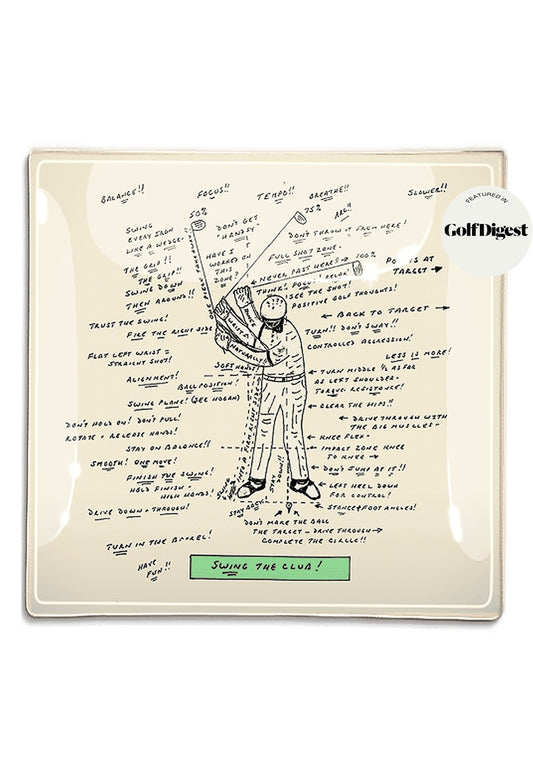 BALANCE!! FOCUS!! TEMPO!! BREATHE!! SLOWER!!
FEATURED IN
GolfDigest
50%
75%
ARG!!
SWING
EVERY IRON
LIKE A WEDGE.
DON'T GET
"HANDSY"
DON'T THROW IT FROM HERE!
THE GRIP!!
THE GRIP!!
HAVE I
WORKED ON
THIS
DONE?
FULL SHOT ZONE.
NEVER PAST HERE? → 100%
IS AT
TARGET →
SWING DOWN
THEN AROUND!!
THINK!
SEE THE SHOT!
POSITIVE GOLF THOUGHTS!
TRUST THE SWING!
← BACK TO TARGET →
FIRE THE RIGHT SIDE
TURN!! DON'T SWAY!!
CONTROLLED AGGRESSION!
NATURALLY
FLAT LEFT WRIST =
STRAIGHT SHOT!
LESS IS MORE!
SOFT HANDS
ALIGNMENT!
BALL POSITION!
← TURN MIDDLE 1/2 AS FAR
AS LEFT SHOULDER.
TORQUE. RESISTANCE!
SWING PLANE! (SEE HOGAN)
← CLEAR THE HIPS!!
DON'T HOLD ON! DON'T PULL!
ROTATE + RELEASE HANDS!
← DRIVE THROUGH WITH
THE BIG MUSCLES.
← KNEE FLEX.
STAY ON BALANCE!!
← IMPACT ZONE KNEE
TO KNEE →
SMOOTH! ONE MOVE!
← DON'T JUMP AT IT!!
FINISH THE SWING!
HOLD FINISH.
HIGH HANDS!
STAY DOWN
← LEFT HEEL DOWN
FOR CONTROL!
DRIVE DOWN + THROUGH!
STAY BACK!
← STANCE + FOOT ANGLES!
DON'T MAKE THE BALL
THE TARGET — DRIVE THROUGH →
COMPLETE THE CIRCLE!!
TURN IN THE BARREL!
HAVE
FUN!!
SWING THE CLUB!